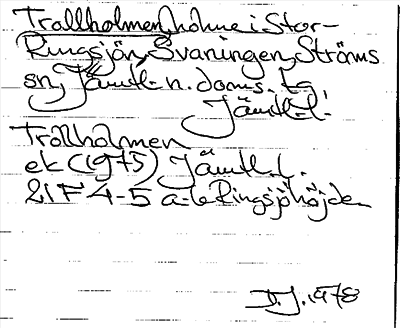 Trollholmen, holme i Stor-
Ringsjön, Svaningen, Ströms
sn, Jämtl. n. doms. tg
Jämtl. l.
Trollholmen
ek (1975) Jämtl. l.
21F 4-5 a-b Ringsjöhöjden
D.J. 1978